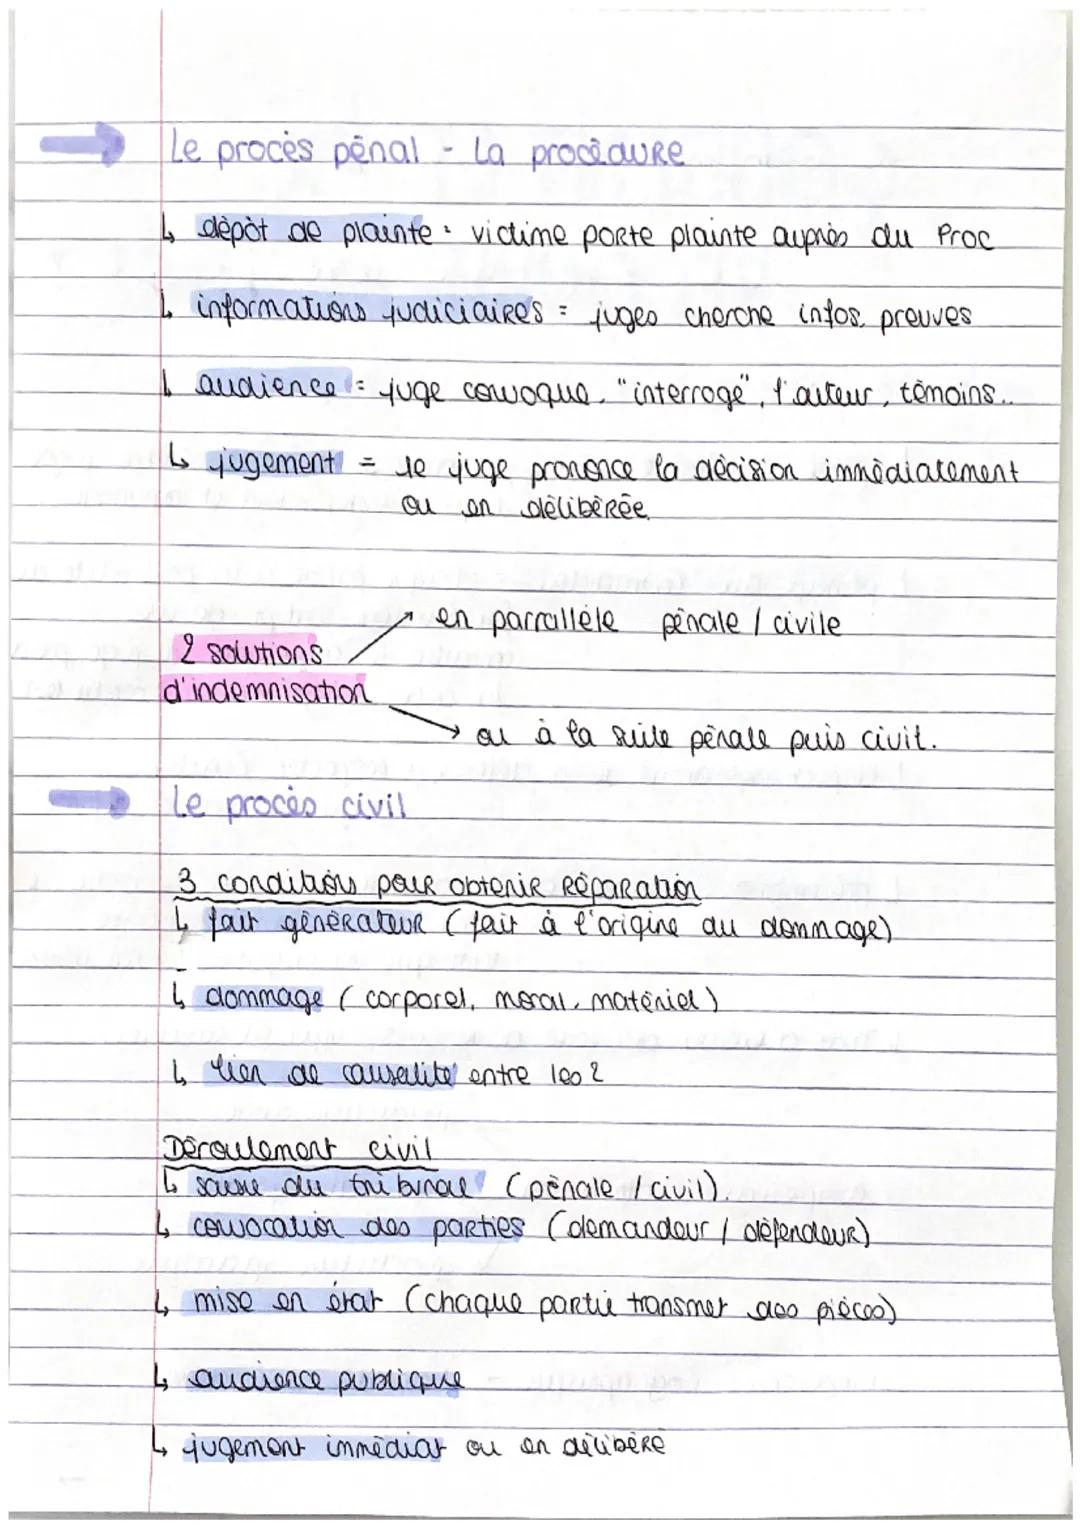 Le procès pénal - La procédure
↳ dépôt de plainte : victime porte plainte auprès du Proc
↳ informations judiciaires = juges cherche infos. preuves
↳ audience = juge convoque. "interroge", l'auteur, témoins..
↳ jugement = le juge prononce la décision immédiatement
ou en délibérée.
en parrallèle pénale / civile
2 solutions
d'indemnisation
→ ou à la suite pénale puis civil.
Le procès civil
3 conditions pour obtenir réparation
↳ fait générateur (fait à l'origine du dommage)
↳ dommage (corporel, moral, matériel)
↳ lien de causalité entre les 2
Déroulement civil
↳ saisie du tribunal (pénale / civil).
↳ convocation des parties (demandeur / défendeur)
↳ mise en état (chaque partie transmet des pièces)
↳ audience publique
↳ jugement immédiat ou en délibéré